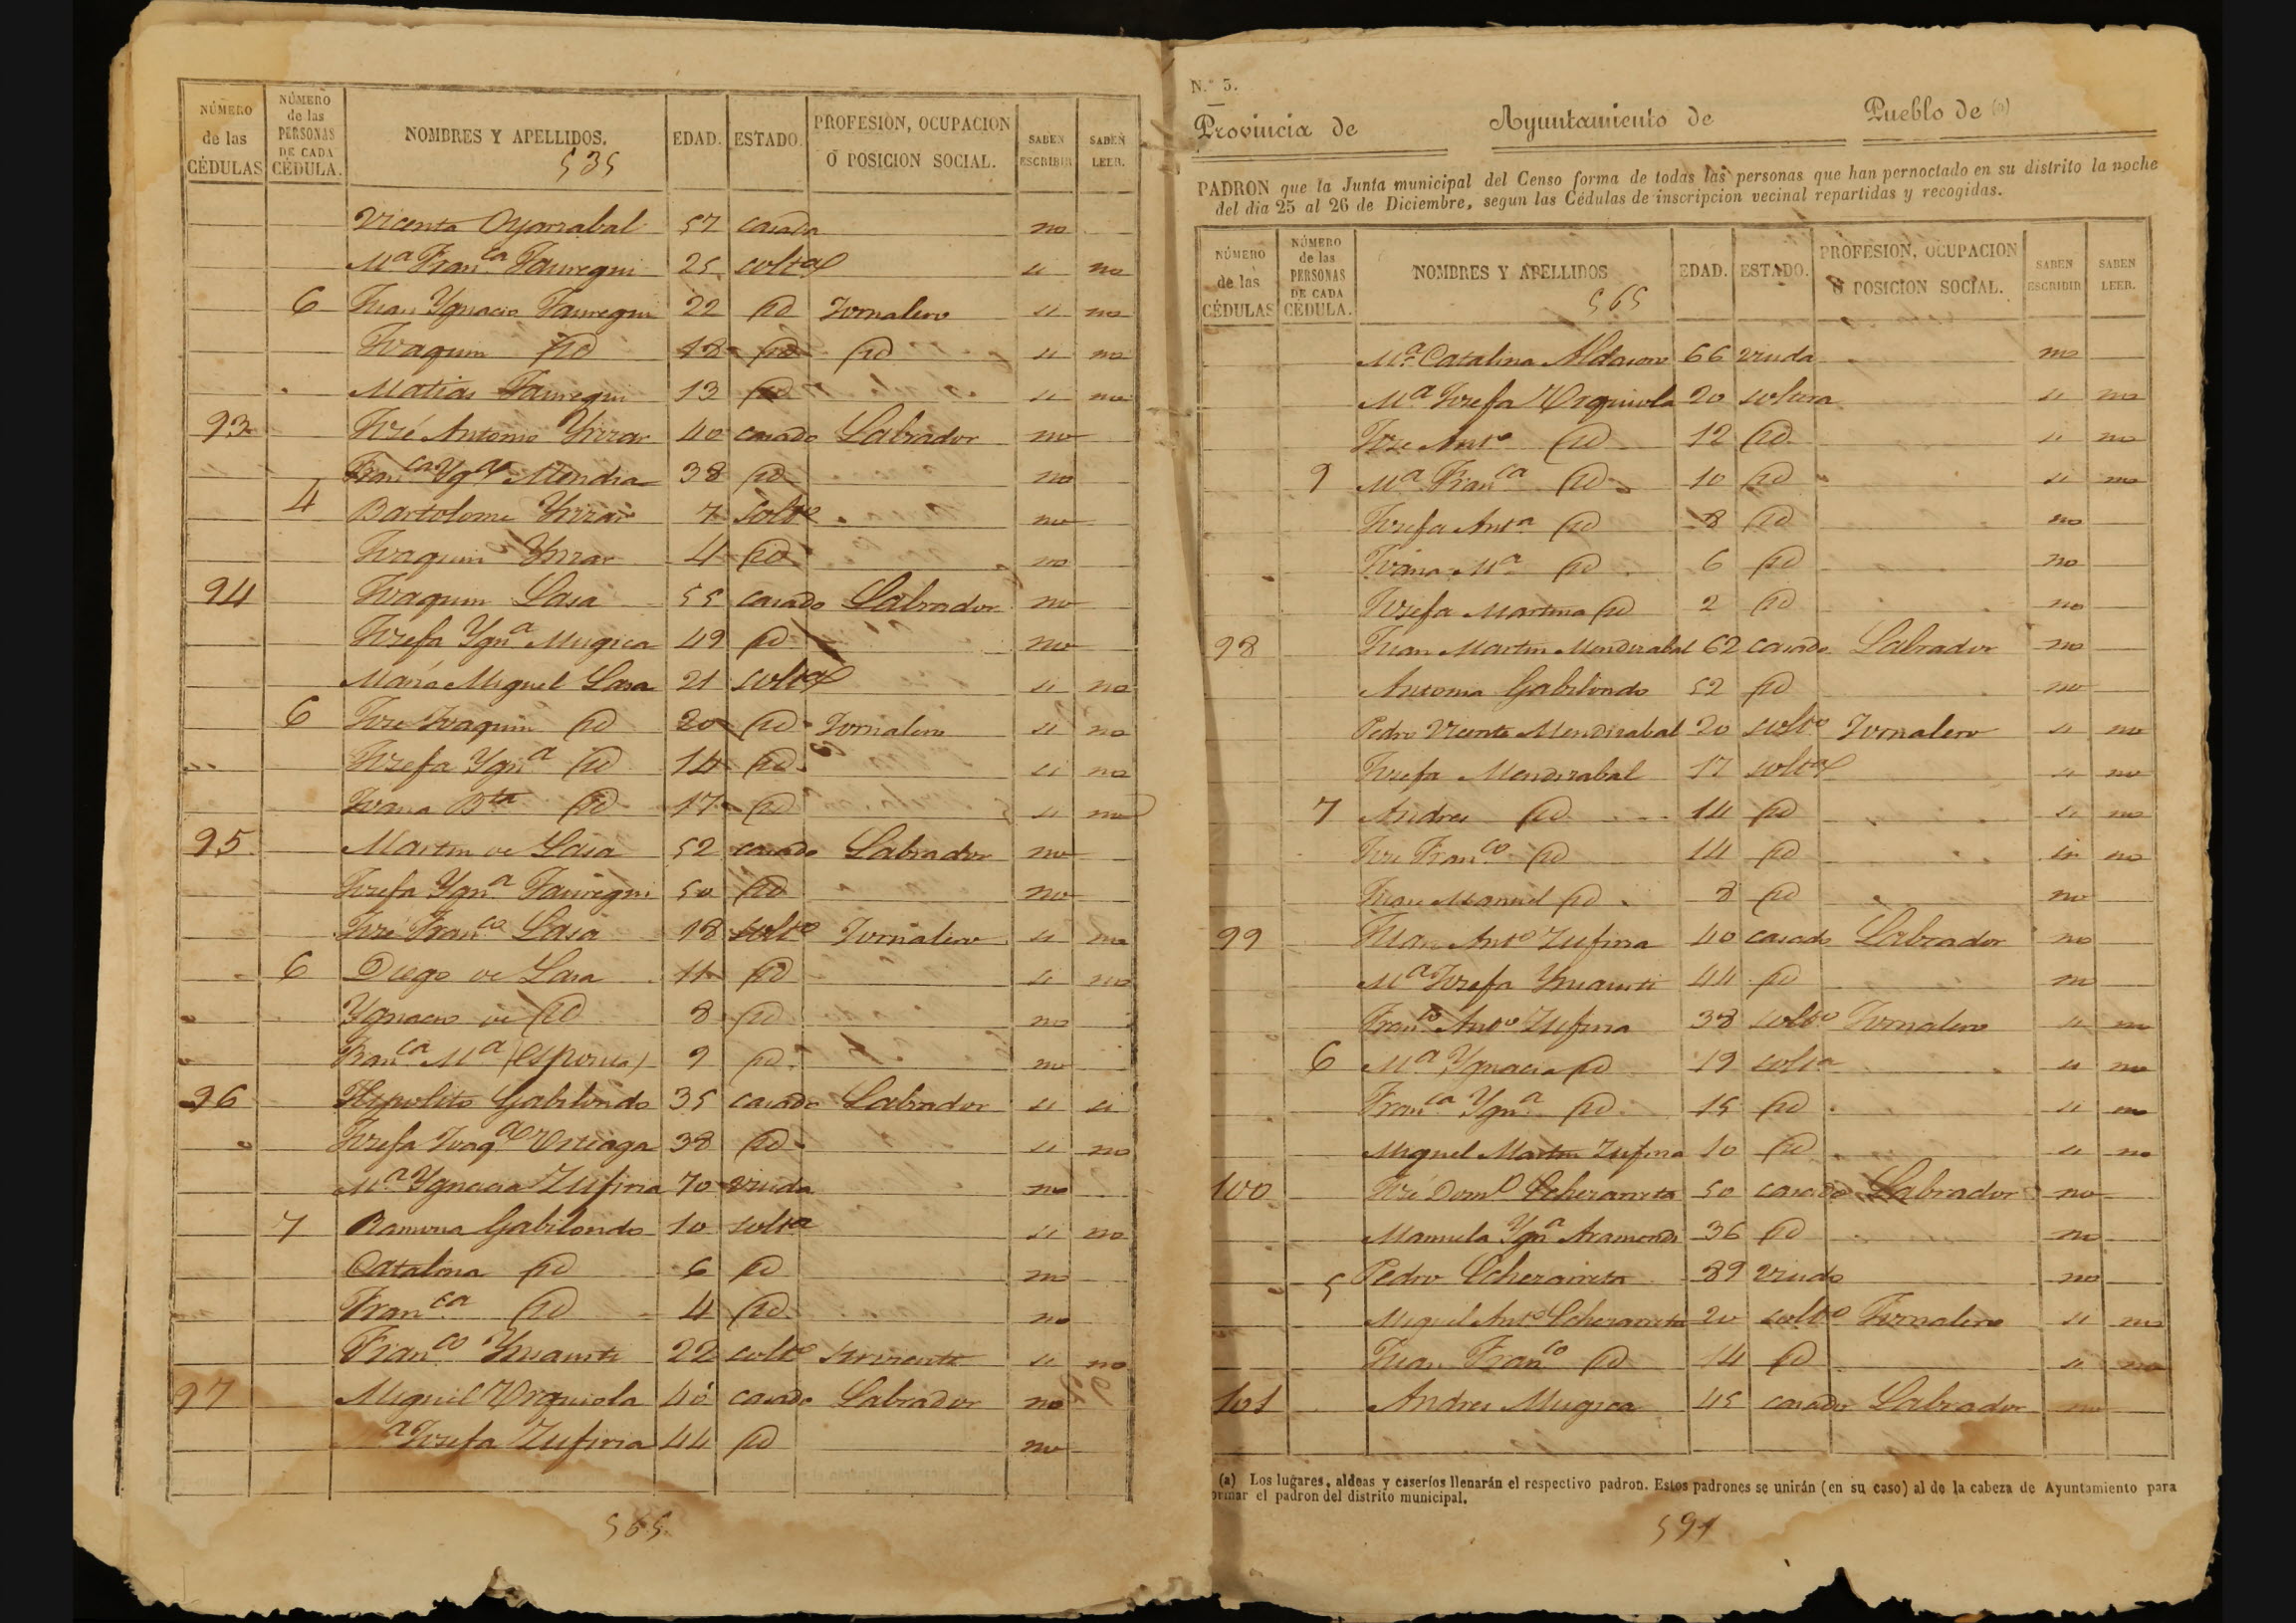 NÚMERO de las CÉDULAS NÚMERO de las PERSONAS DE CADA CÉDULA. NOMBRES Y APELLIDOS. EDAD. ESTADO. PROFESION, OCUPACION Ó POSICION SOCIAL. SABEN ESCRIBIR SABEN LEER.
535
Vicenta Oyarzabal 57 casada no
Mª Franca Jauregui 25 solta si no
6 Juan Ygnacio Jauregui 22 id Jornalero si no
Joaquin id 18 id id si no
Matias Jauregui 13 id si no
93 José Antonio Yrizar 40 casado Labrador no
Franca Ygna Mendia 38 id no
4 Bartolome Yrizar 7 solto no
Joaquin Yrizar 4 id no
94 Joaquin Lasa 55 casado Labrador no
Josefa Ygna Mugica 49 id no
Maria Miguel Lasa 21 solta si no
6 José Joaquin id 20 id Jornalero si no
Josefa Ygna id 14 id si no
Juana Bta id 17 id si no
95 Martin de Lasa 52 casado Labrador no
Josefa Ygna Jauregui 50 id no
José Franco Lasa 18 solto Jornalero si no
6 Diego de Lasa 11 id si no
Ygnacio de id 8 id no
Franca Mª (esposita) 9 id no
96 Hipolito Gabilondo 35 casado Labrador si si
Josefa Joaqa Urteaga 38 id si no
Mª Ygnacia Zufiria 70 viuda no
7 Ramona Gabilondo 10 solta si no
Catalina id 6 id no
Franca id 4 id no
Franco 22 solto Sirviente si no
97 Miguel Urquiola 40 casado Labrador no
ª Josefa Zufiria 44 id no
565
N.º 5.
Provincia de Ayuntamiento de Pueblo de (a)
PADRON que la Junta municipal del Censo forma de todas las personas que han pernoctado en su distrito la noche
del dia 25 al 26 de Diciembre, segun las Cédulas de inscripcion vecinal repartidas y recogidas.
NÚMERO de las CÉDULAS NÚMERO de las PERSONAS DE CADA CÉDULA. NOMBRES Y APELLIDOS EDAD. ESTADO. PROFESION, OCUPACION Ó POSICION SOCIAL. SABEN ESCRIBIR SABEN LEER.
565
Mª Catalina 66 viuda no
Mª Josefa Urquiola 20 soltera si no
José Anto id 12 id si no
9 Mª Franca id 10 id si no
Josefa Anta id 8 id no
Juana Mª id 6 id no
Josefa Martina id 2 id no
98 Juan Martin Mendizabal 62 casado Labrador no
Antonia Gabilondo 52 id no
Pedro Vicente Mendizabal 20 solto Jornalero si no
Josefa Mendizabal 17 solta si no
7 Andres id 14 id si no
José Franco id 14 id no
Juan Manuel id 8 id no
99 Juan Anto Zufiria 40 casado Labrador no
Mª Josefa 44 id no
Franco Anto Zufiria 38 solto Jornalero si no
6 Mª Ygnacia id 19 solta si no
Franca Ygna id 15 id si no
Miguel Martin Zufiria 10 id si no
100 José Domo Echezarreta 50 casado Labrador no
Manuela Ygna Aramendi 36 id no
5 Pedro Echezarreta 89 viudo no
Miguel Anto Echezarreta 20 solto Jornalero si no
Juan Franco id 14 id si no
101 Andres Mugica 45 casado Labrador no
(a) Los lugares, aldeas y caseríos llenarán el respectivo padron. Estos padrones se unirán (en su caso) al de la cabeza de Ayuntamiento para
ormar el padron del distrito municipal.
591